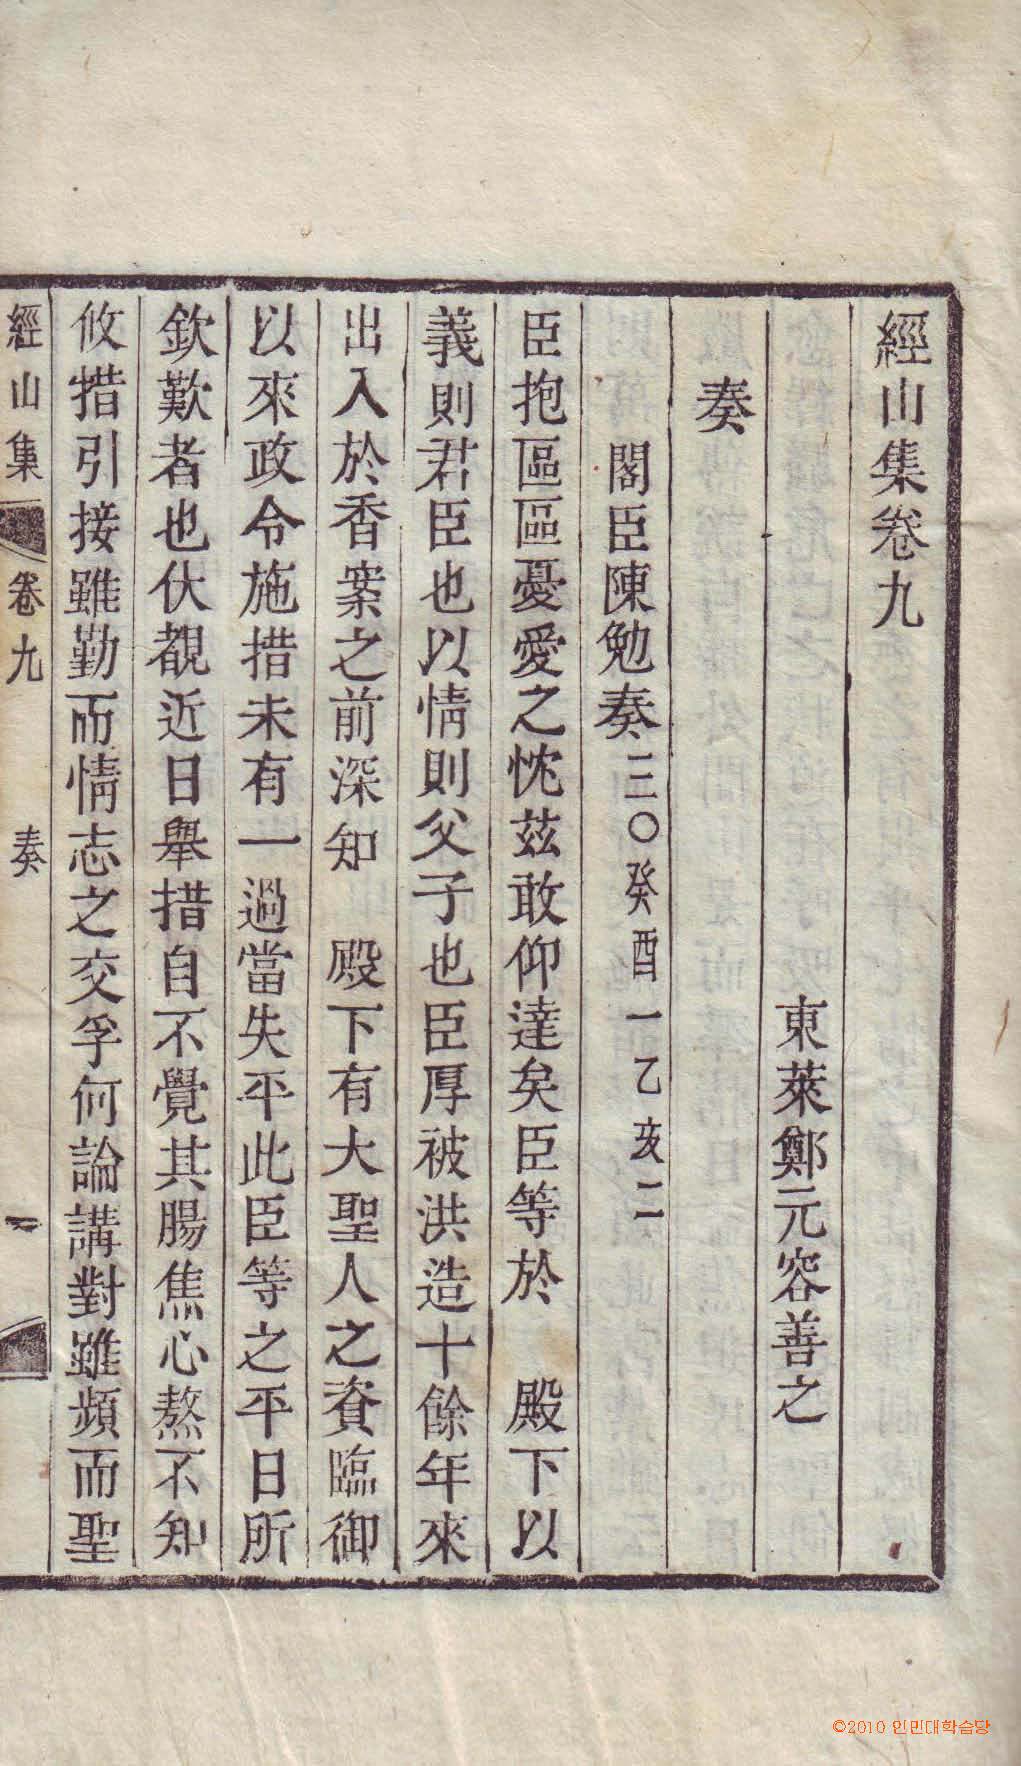 經山集卷九
東萊鄭元容善之
奏
閣臣陳勉奏三〇癸酉一乙亥二
臣抱區區憂愛之忱玆敢仰達矣臣等於 殿下以
義則君臣也以情則父子也臣厚被洪造十餘年來
出入於香案之前深知 殿下有大聖人之資臨御
以來政令施措未有一過當失平此臣等之平日所
欽歎者也伏覩近日擧措自不覺其腸焦心熬不知
攸措引接雖勤而情志之交孚何論講對雖頻而聖
經山集 卷九 奏 一
©2010 인민대학습당